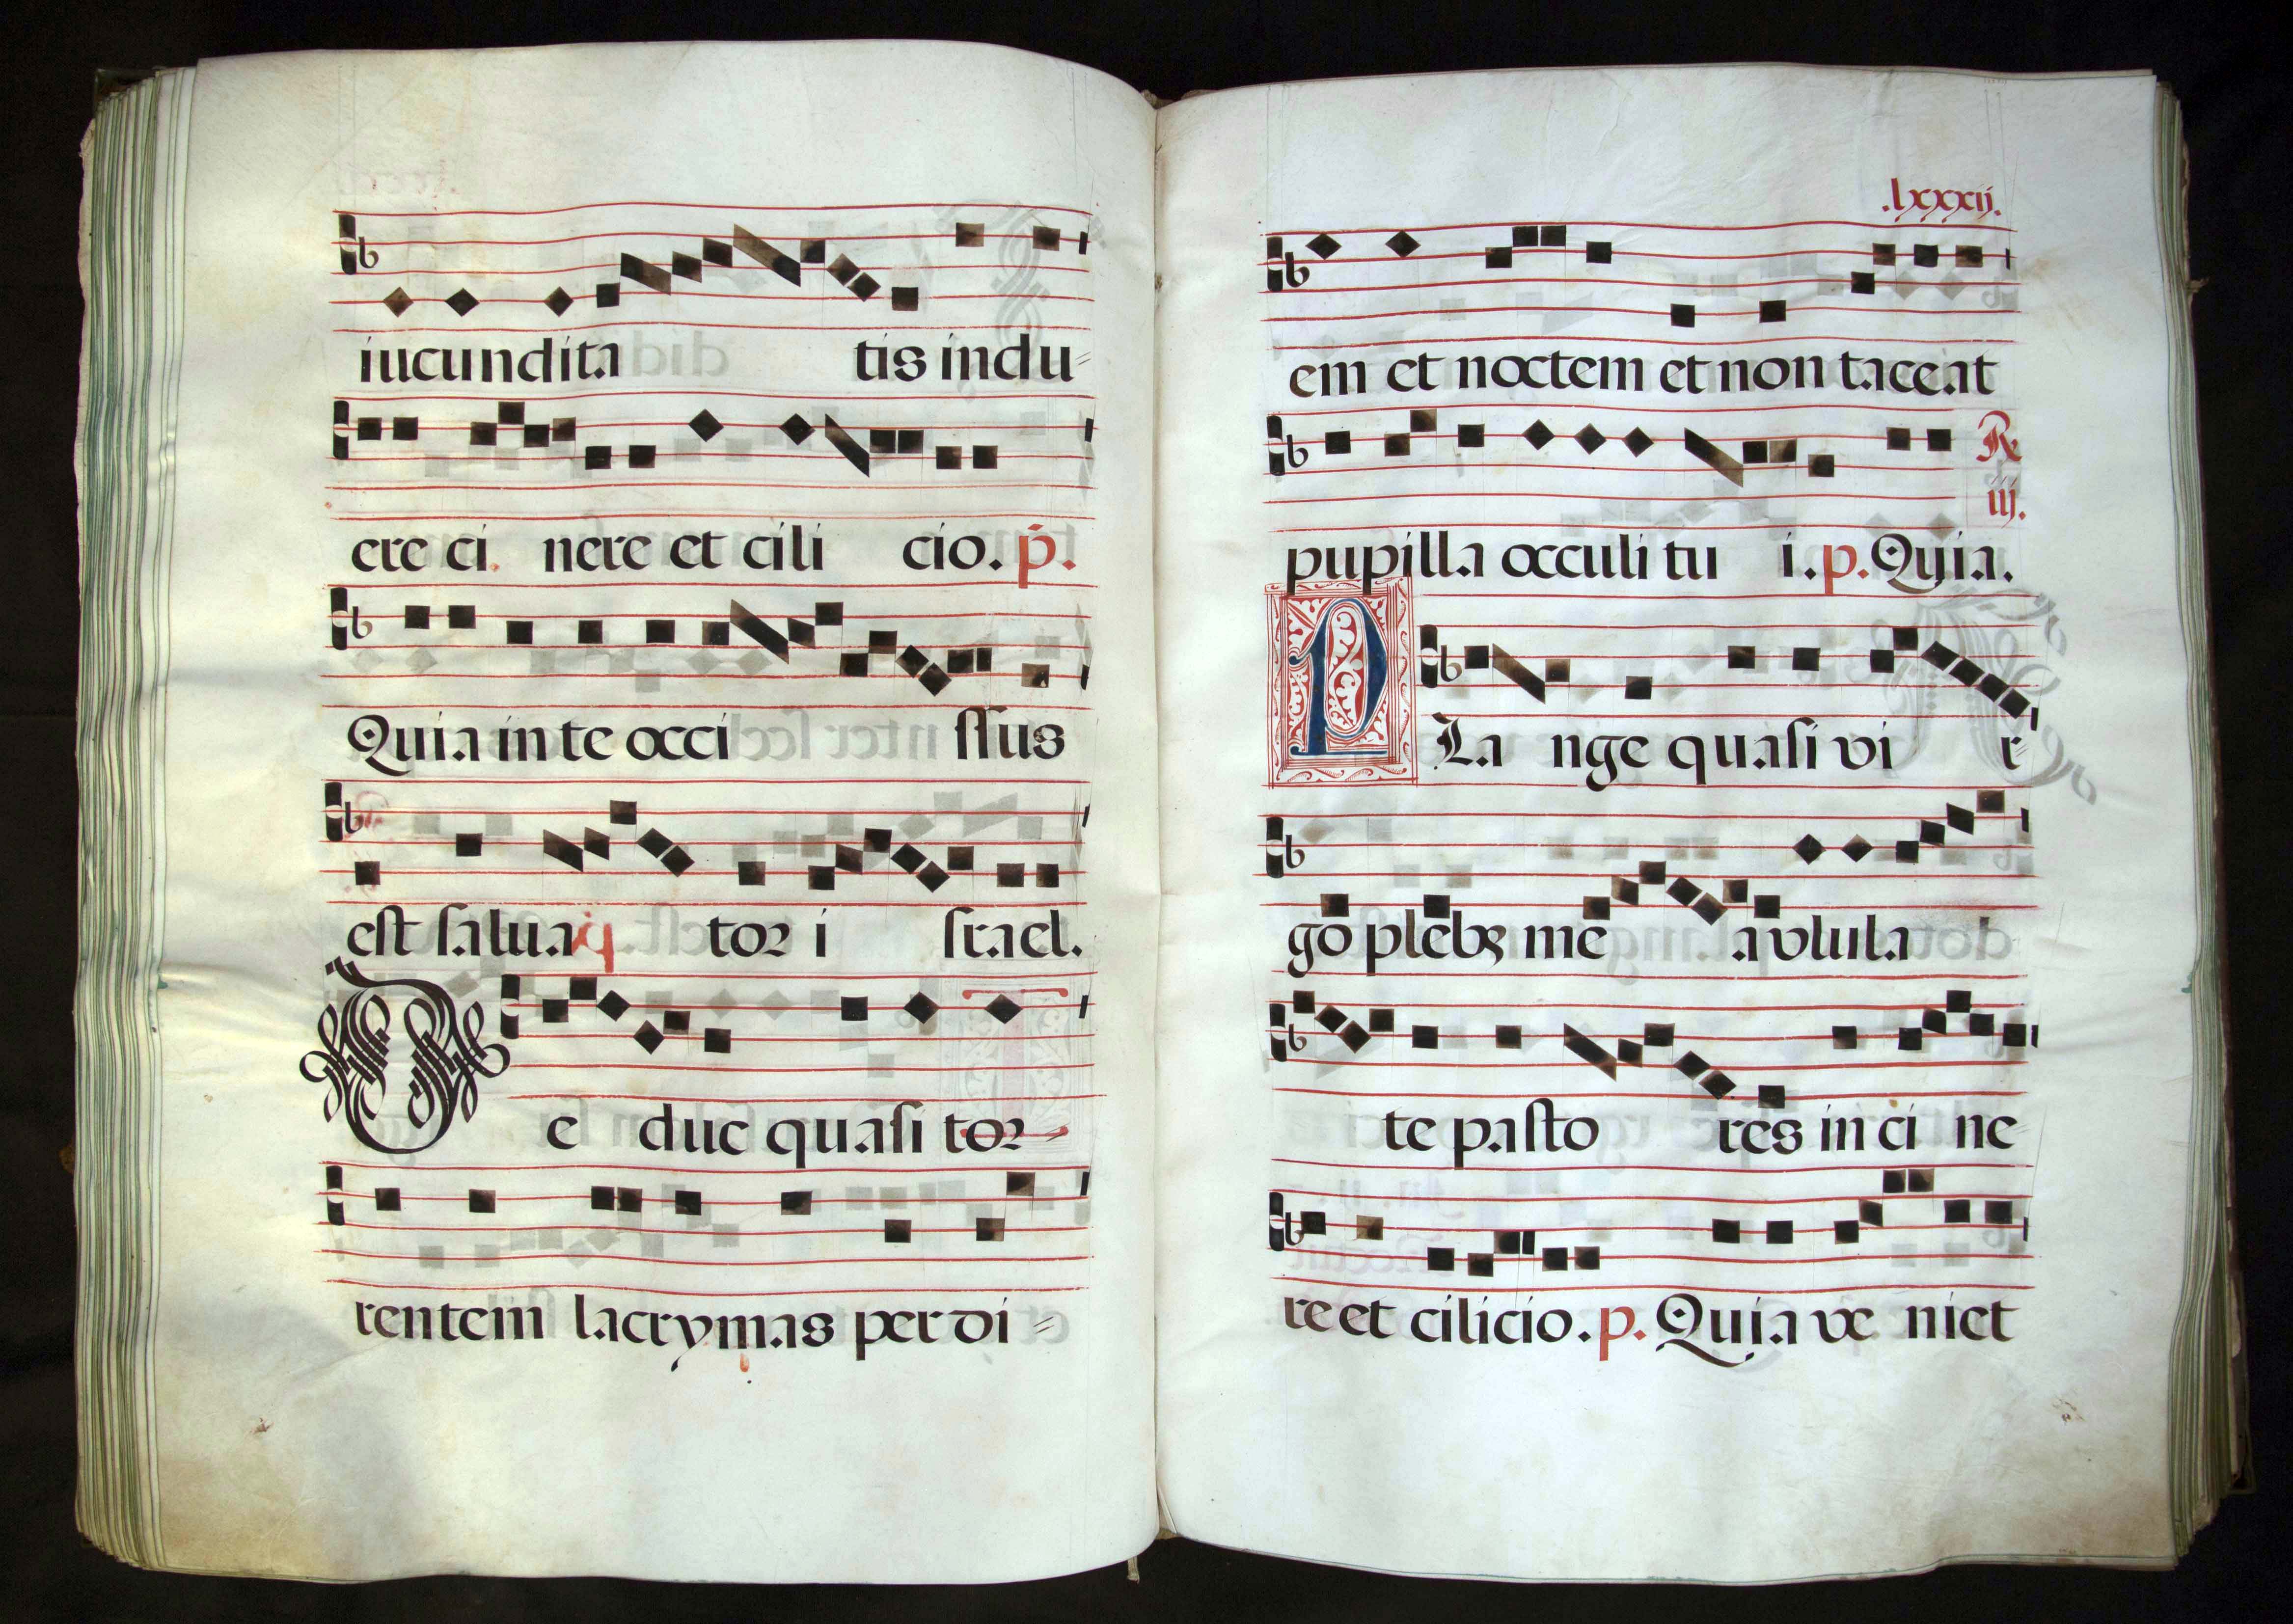 iucundita tis indu=
ere ci. nere et cili cio. p.
Quia in te occi ssus
est salua tor i srael.
De duc quasi tor=
rentem lacrymas per di=
.lxxxij.
em et noctem et non taceat
R
iij.
pupilla occuli tu i. p. Quia.
PLa nge quasi vi r=
go plebs me a vlula
te pasto res in ci ne
re et cilicio. p. Quia ve niet